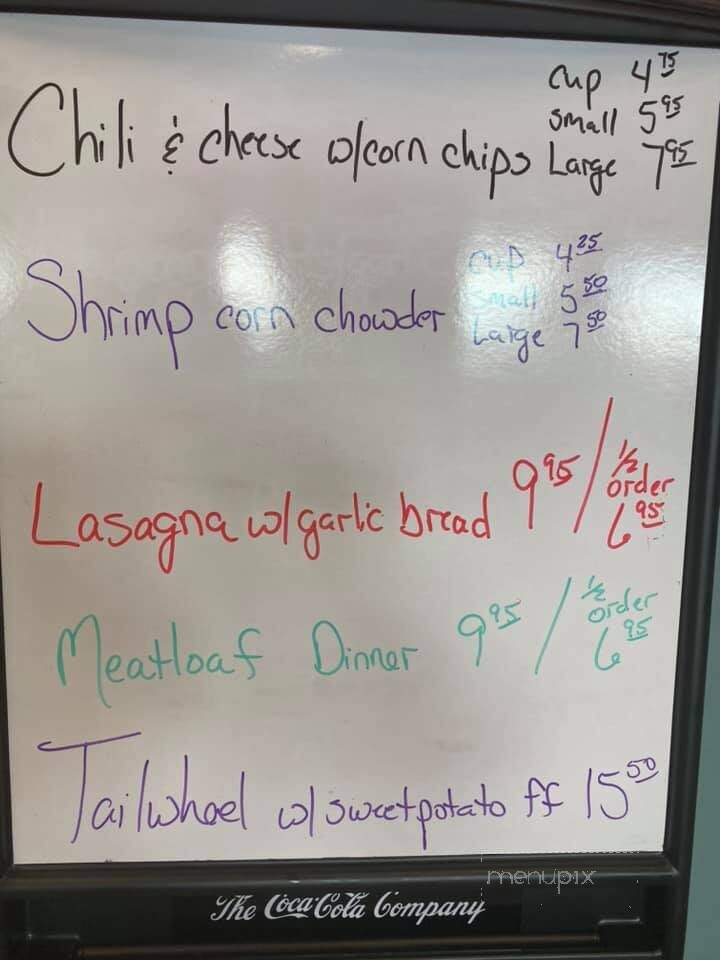 Chili & cheese w/corn chips
cup 4 75
small 5 95
Large 7 95
Shrimp corn chowder
cup 4 25
small 5 50
Large 7 50
Lasagna w/garlic bread 9 95 / 1/2 order 6 95
Meatloaf Dinner 9 95 / 1/2 order 6 95
Tailwheel w/sweetpotato ff 15 50
menupix
The Coca-Cola Company